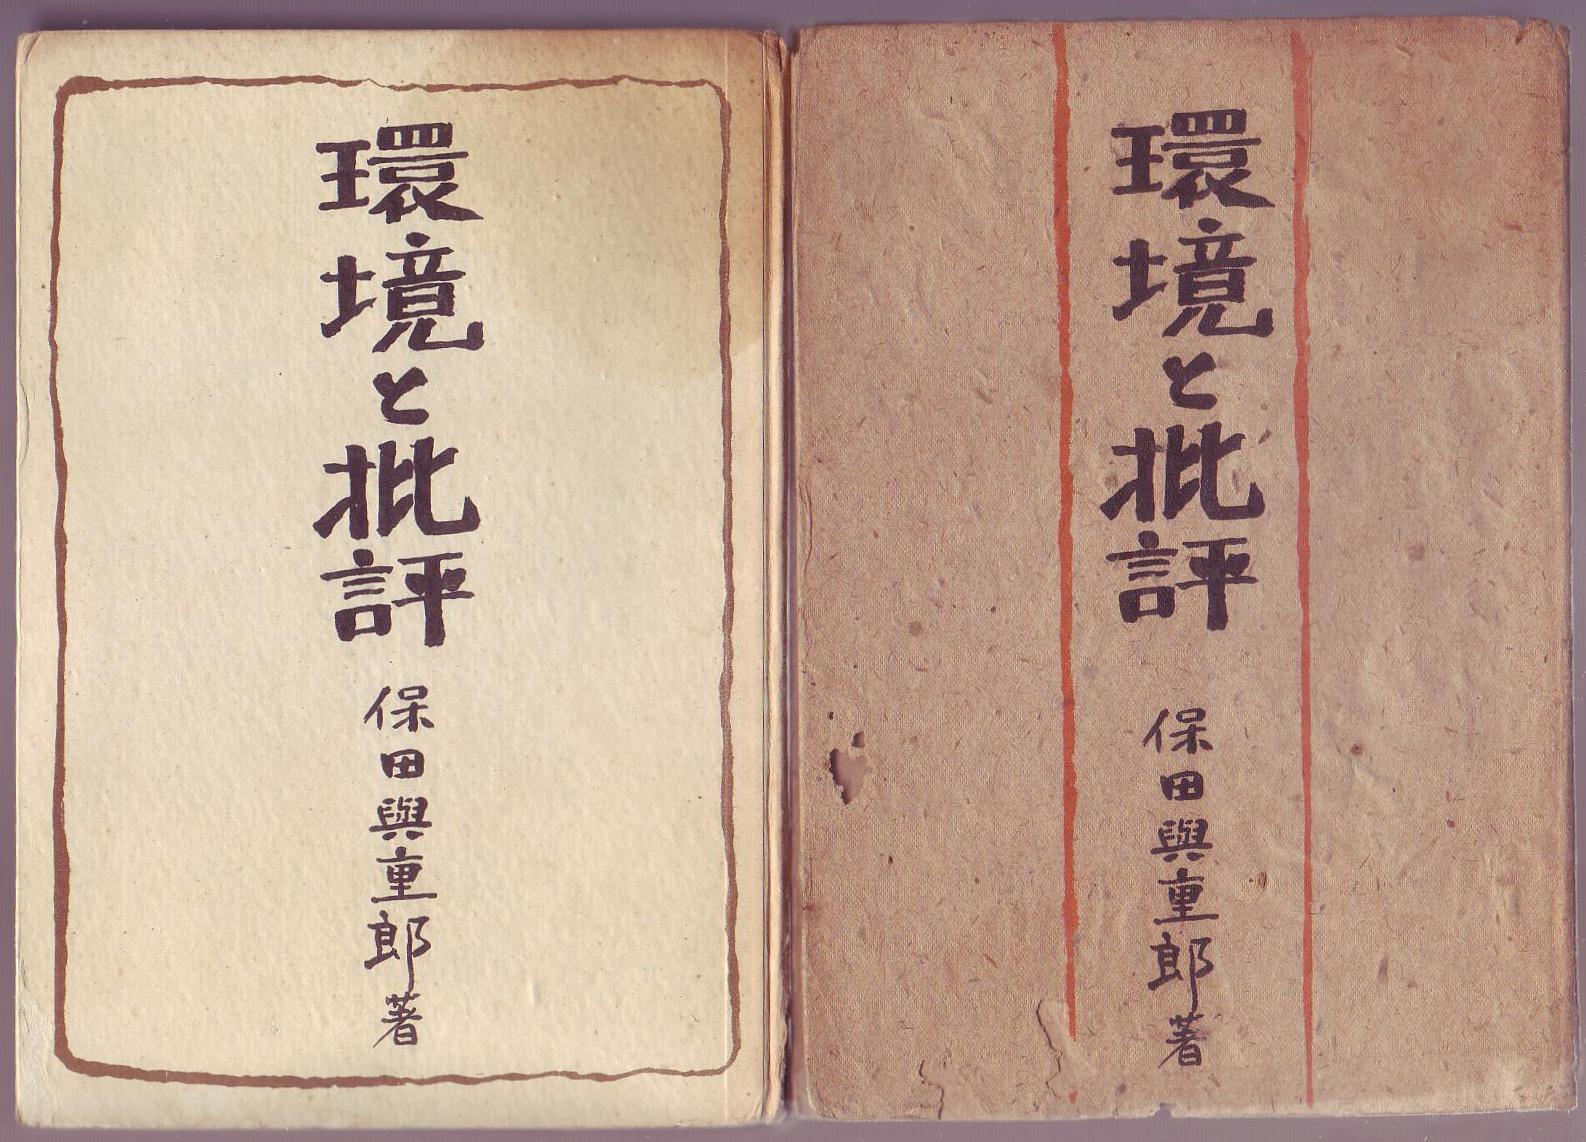 環境と批評
保田與重郎著
環境と批評
保田與重郎著